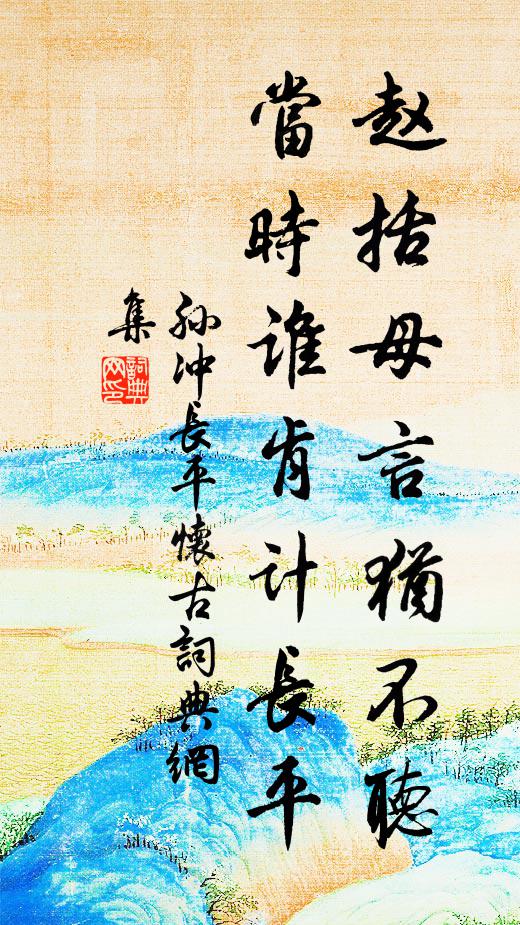 赵括母言犹不聴
當時谁肯计長平
孙冲長平懷古詞典網
集
詞典网印